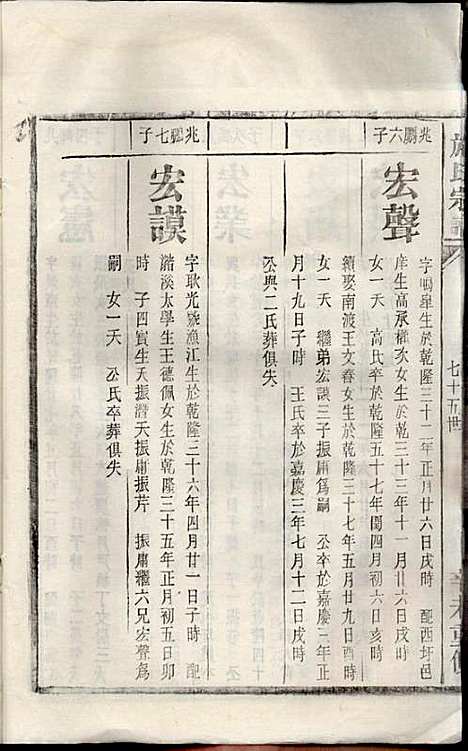 氏宗譜
七十五世
辛未重修
兆鵬六子
宏聲
字鳴皐生於乾隆三十二年正月廿六日戌時 配西圩邑
庠生高承權次女生於乾隆三十三年十一月廿三日戌時
女一夭 高氏卒於乾隆五十七年閏四月初六日亥時
續娶南渡王文春女生於乾隆三十七年五月廿九日酉時
女一夭 繼弟宏謨三子振庸爲嗣 公卒於嘉慶三年正
月十九日子時 王氏卒於嘉慶三年七月十二日戌時
公與二氏葬俱失
兆鵬七子
宏謨
字耿光號漁江生於乾隆三十六年四月廿一日子時 配
潽溪太學生王德佩女生於乾隆三十五年正月初五日卯
時 子四寅生夭振潛夭振庸振芹 振庸繼六兄宏聲爲
嗣 女一夭 公氏卒葬俱失